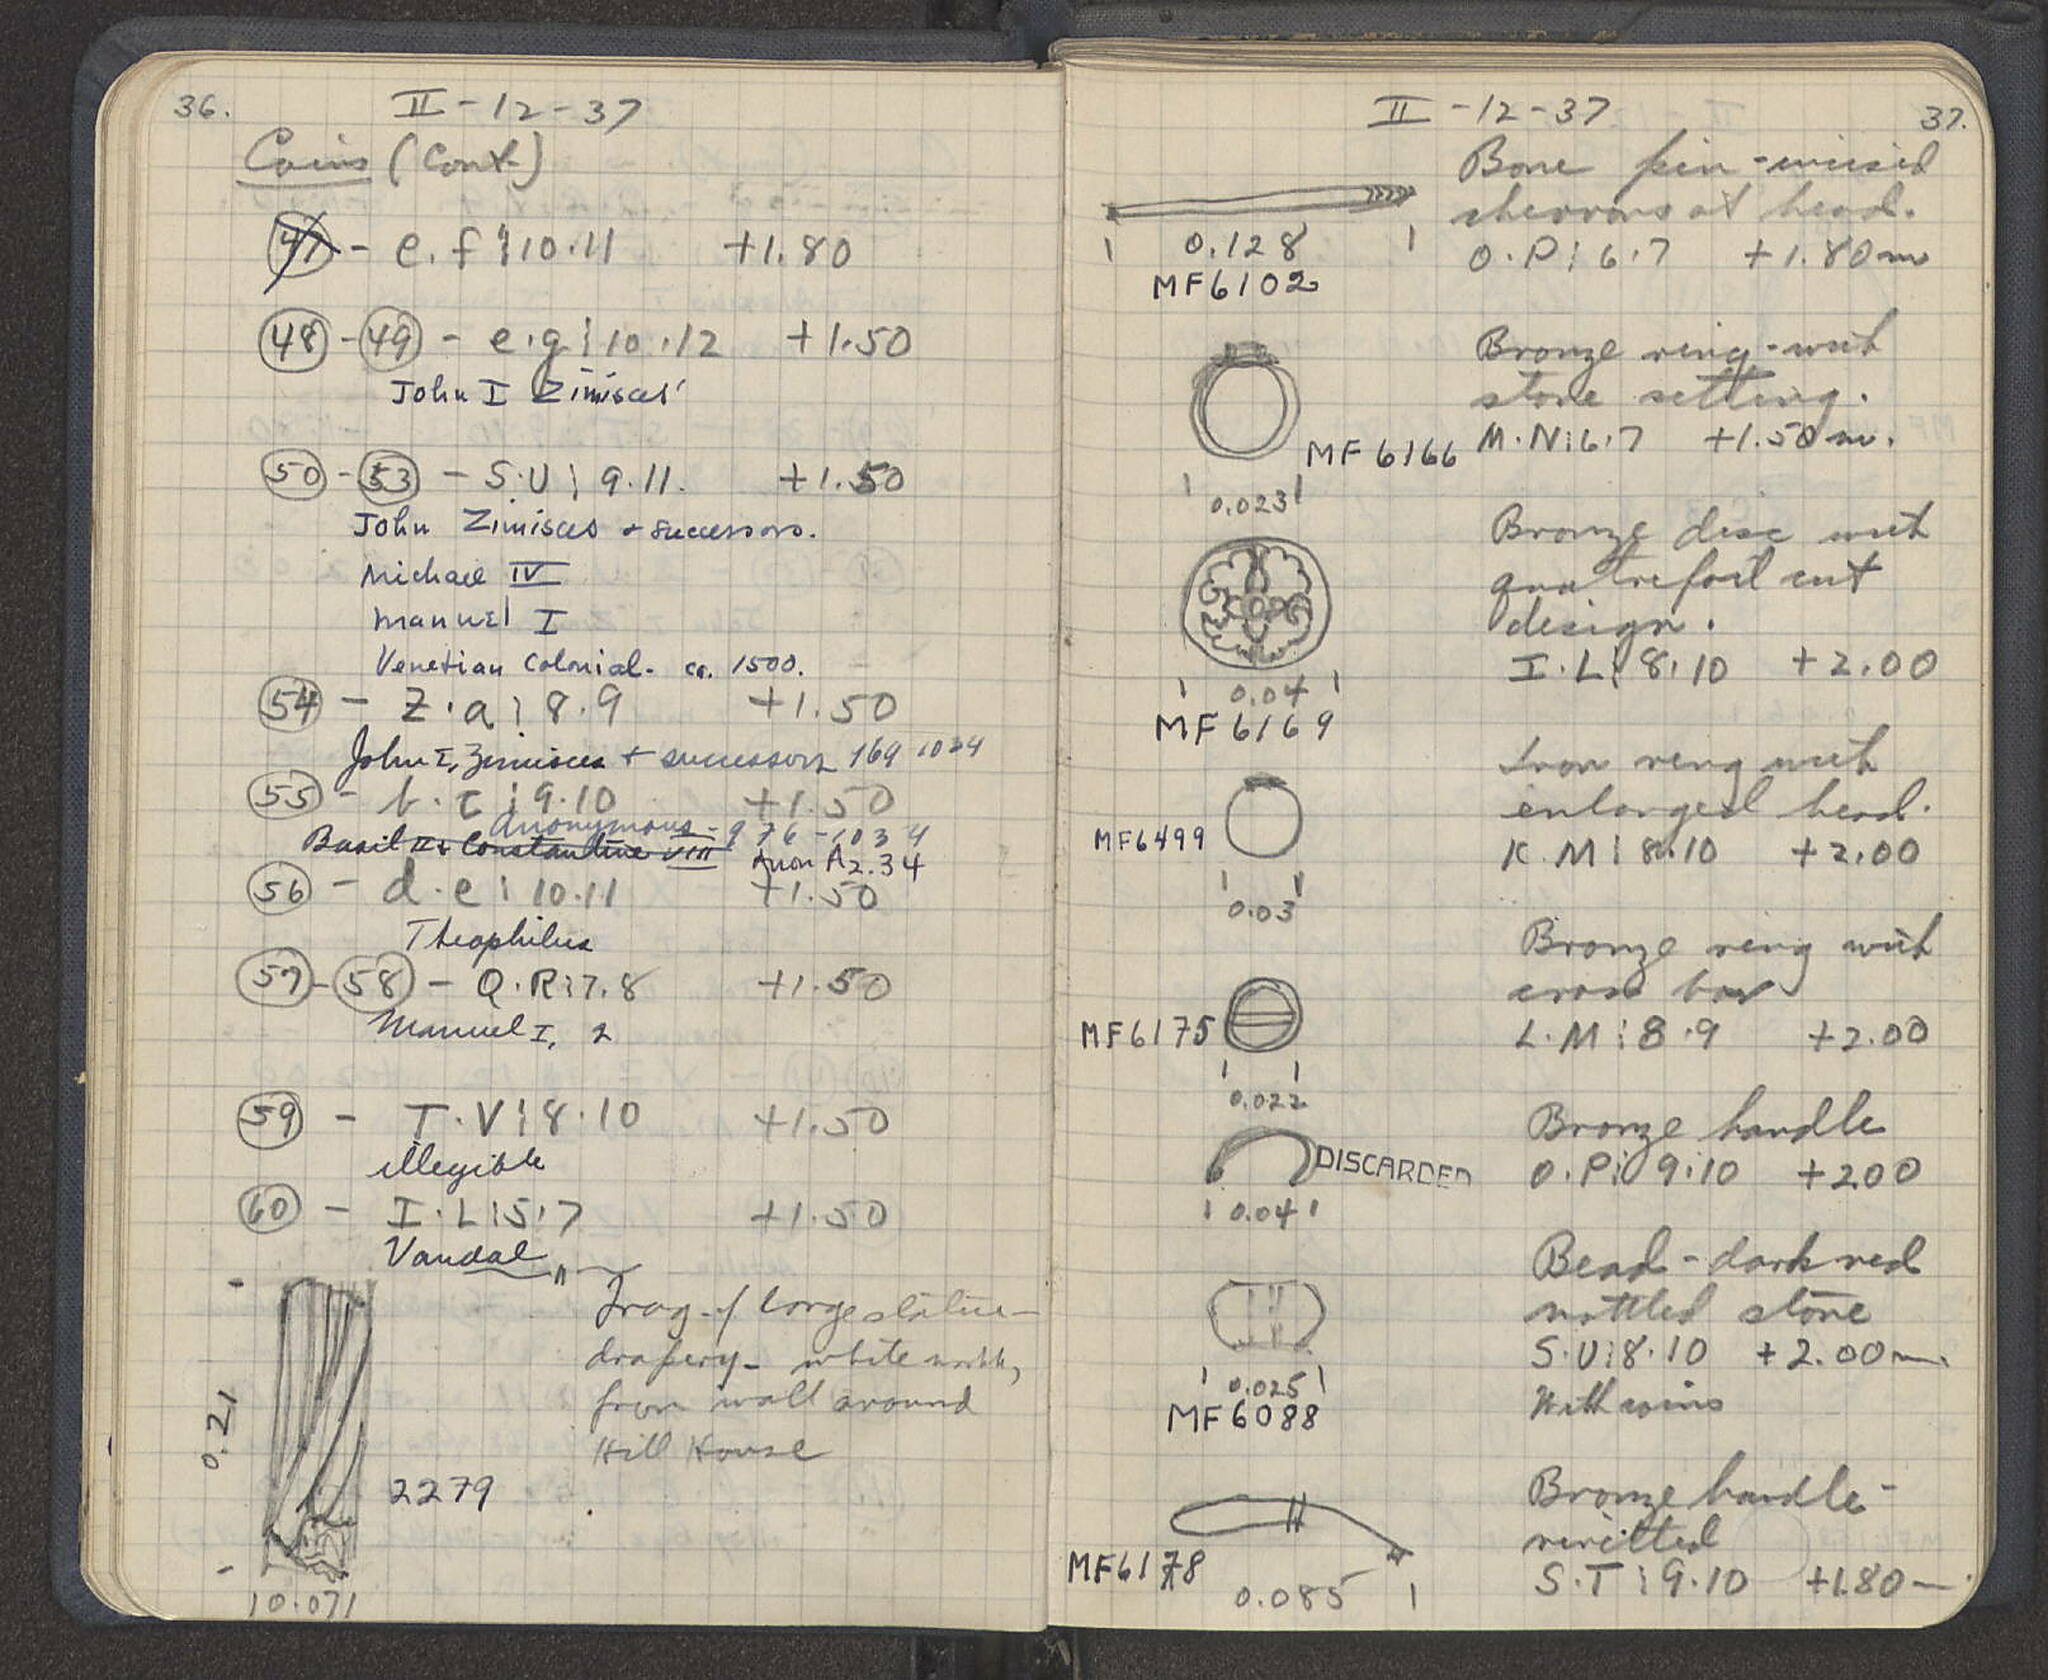 36.
II-12-37
Coins (Cont.)
47 - e.f¦10.11 +1.80
48 - 49 - e.g¦10.12 +1.50
John I Zimisces
50 - 53 - S.U¦9.11. +1.50
John Zimisces + successors.
Michael IV
Manuel I
Venetian Colonial - ca. 1500.
54 - Z.a¦8.9 +1.50
John I, Zimisces + successors 969 1024
55 - b.c¦9.10 +1.50
Anonymous - 976-1034
Basil II & Constantine VIII Anon A2.34
56 - d.e¦10.11 +1.50
Theophilus
57 - 58 - Q.R¦7.8 +1.50
Manuel I, 2
59 - T.V¦8.10 +1.50
illegible
60 - I.L¦5.7 +1.50
Vandal
Frag. of large statue -
drapery - white marble,
from wall around
Hill House
0.21
2279
0.07
II-12-37
37.
Bone pin - incised
chevrons at head.
O.P¦6.7 +1.80m
0.128
MF6102
Bronze ring - with
stone setting.
M.N¦6.7 +1.50m.
MF6166
0.023
Bronze disc with
quatrefoil cut
design.
I.L¦8.10 +2.00
0.04
MF6169
Iron ring with
enlarged head.
K.M¦8.10 +2.00
MF6499
0.03
Bronze ring with
cross bar
L.M¦8.9 +2.00
MF6175
0.022
Bronze handle
O.P¦9.10 +2.00
DISCARDED
0.04
Bead - dark red
mottled stone
S.U¦8.10 +2.00m.
With coins
0.025
MF6088
Bronze handle -
rivitted
S.T¦9.10 +1.80
MF6178
0.085